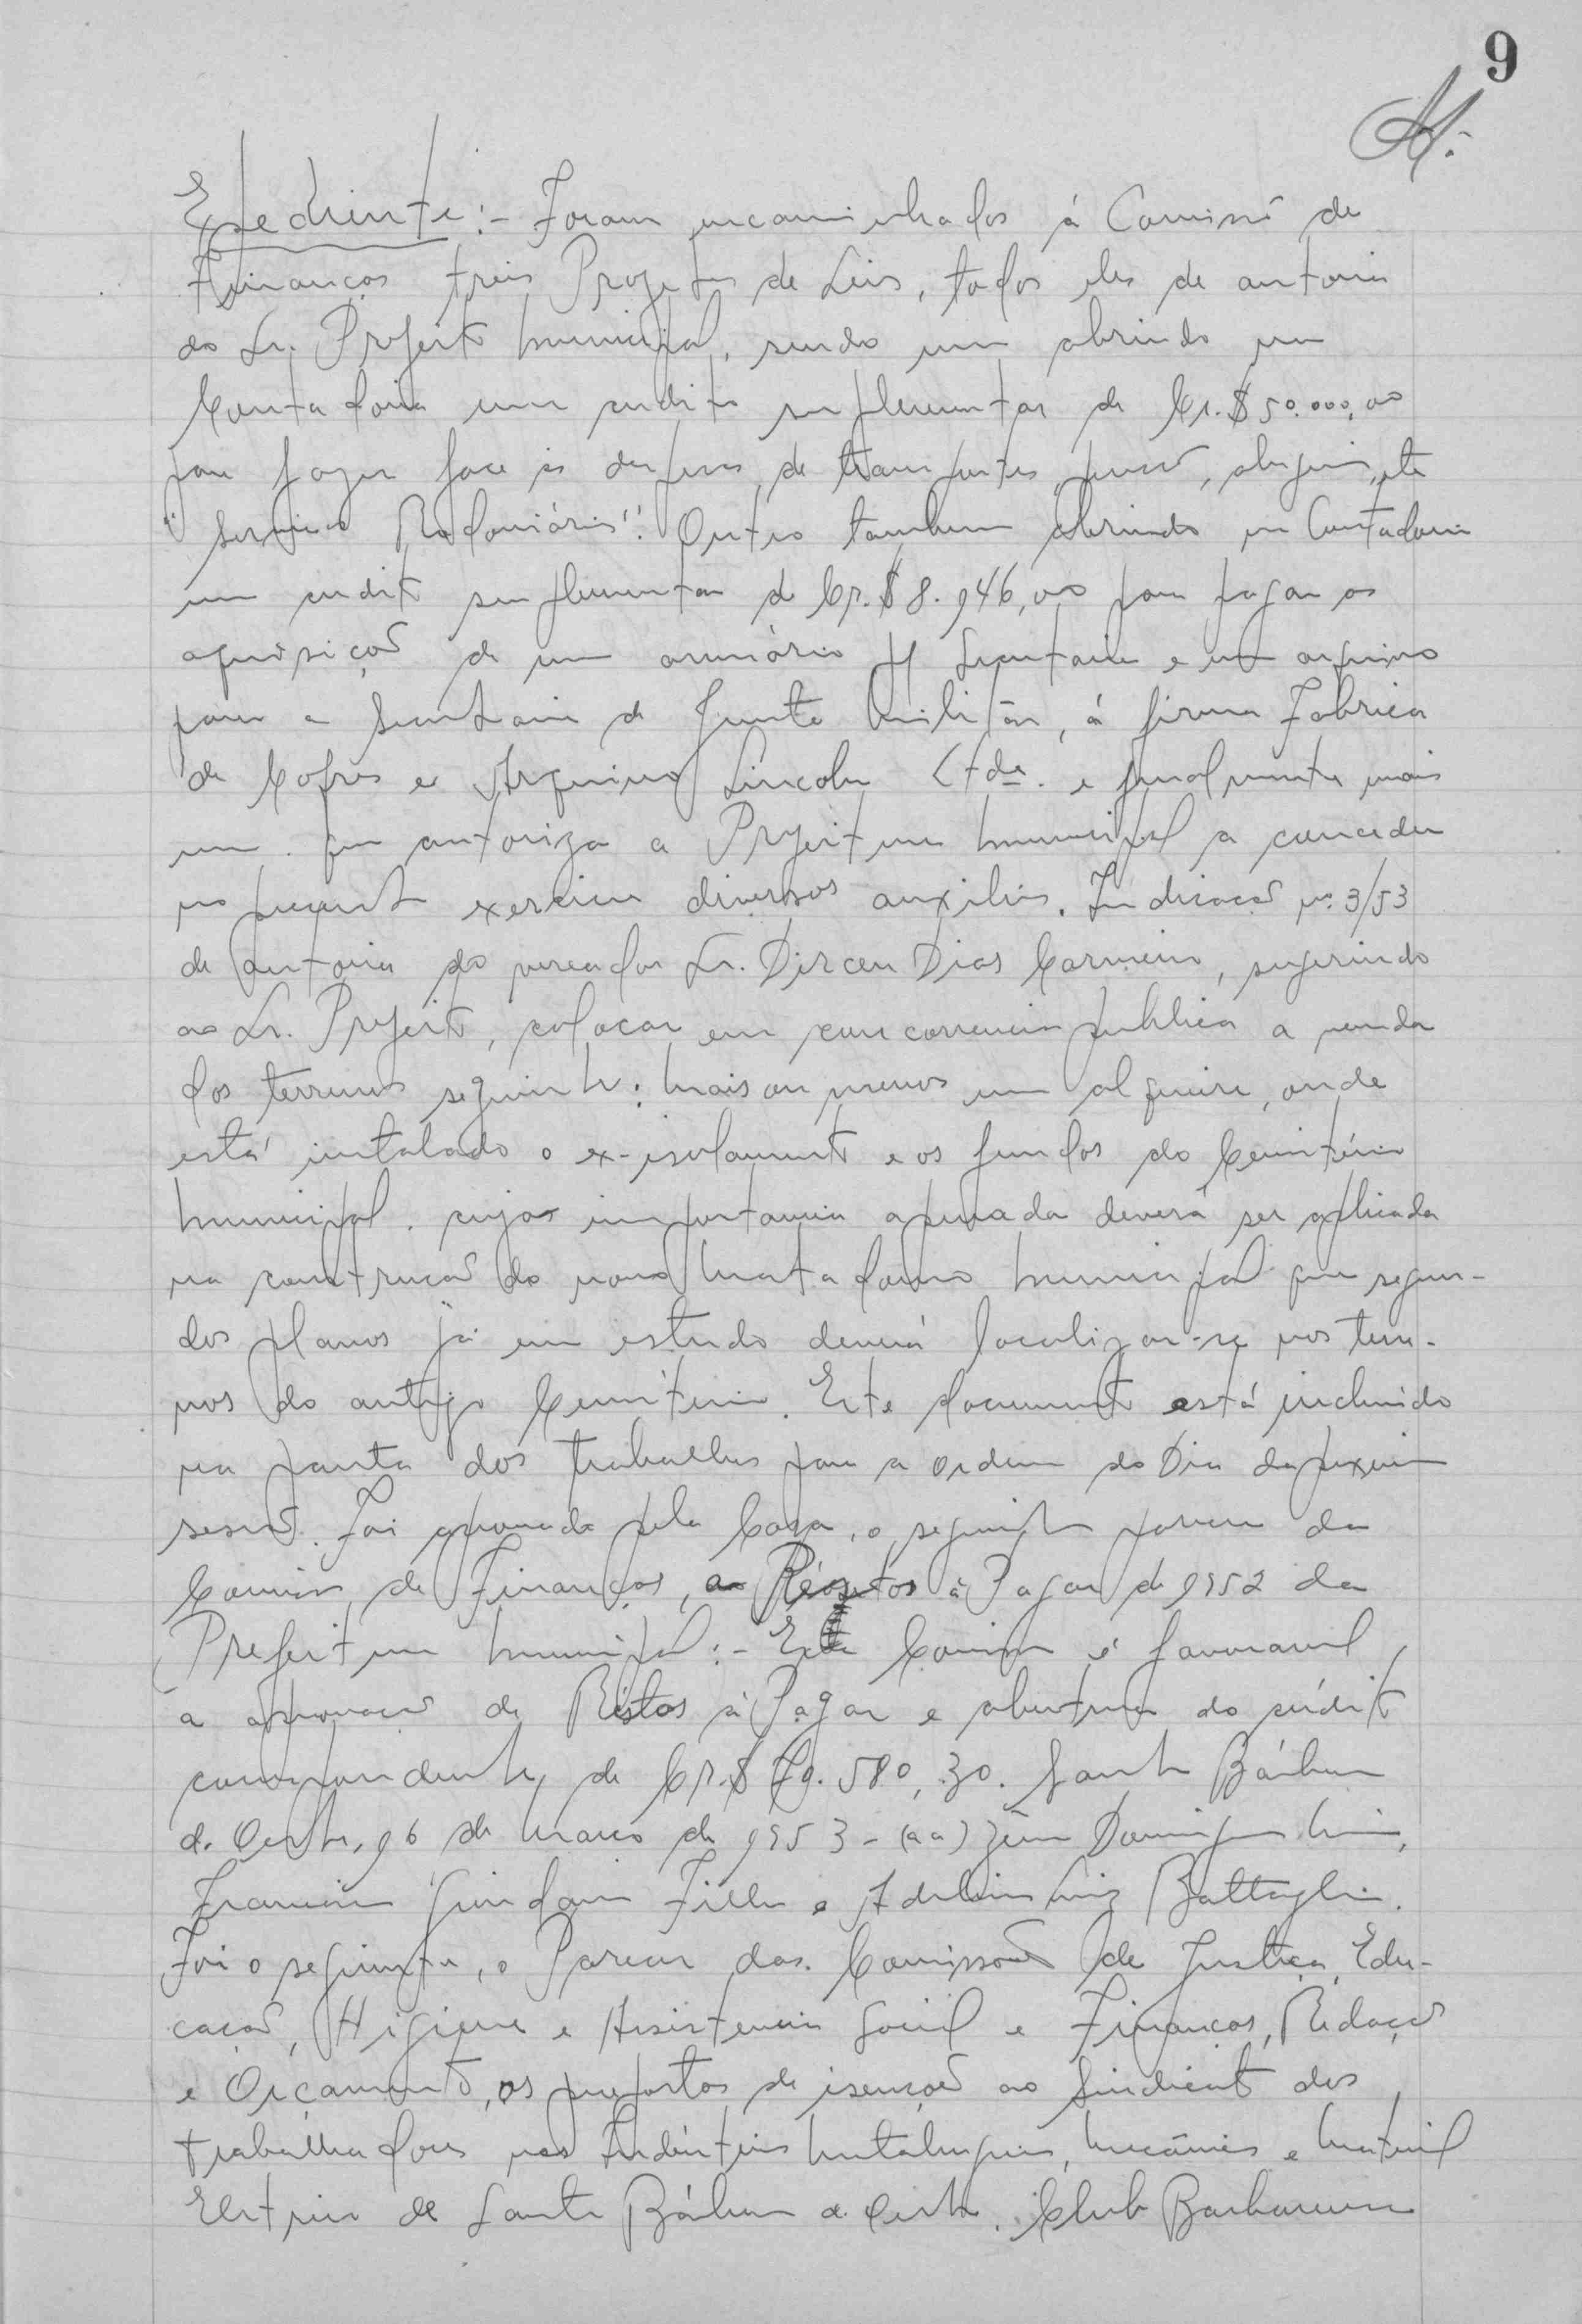 9
Expediente:- Foram encaminhados á Comissão de
Finanças treis Projetos de Leis, todos eles de autoria
do Sr. Prefeito Municipal, sendo um abrindo na
Contadoria um credito suplementar de Cr.$ 50.000,00
para fazer face ás despesas de transportes, pessoal, alugueis, etc
"Serviços Rodoviários". Outro tambem abrindo na Contadoria
um credito suplementar de Cr.$ 8.946,00 para pagar as
aquisição de um armário p/ Secretaria e um arquivo
para a Secretaria da Junta Militar, á firma Fabrica
de Cofres e Arquivos Lincoln Ltda. e finalmente mais
um que autoriza a Prefeitura Municipal a conceder
no presente exercicio diversos auxilios. Indicação nº 3/53
de autoria do vereador Sr. Dirceu Dias Carneiro, sugerindo
ao Sr. Prefeito, colocar em concorrencia publica a venda
dos terrenos seguinte: Mais ou menos um alqueire, onde
está instalado o ex-isolamento e os fundos do Cemitério
Municipal. cujas importancia apurada deverá ser aplicada
na construção do novo Matadouro Municipal que segun-
dos planos já em estudo deverá localizar-se nos terre-
nos do antigo Cemiterio. Este documento está incluido
na pauta dos trabalhos para a Ordem do Dia da proxima
sessão. Foi aprovado pela Casa, o seguinte parecer da
Comissão de Finanças, ao Restos á Pagar de 1952 da
Prefeitura Municipal:- Esta Comissão é favoravel
a aprovação de Restos á Pagar e abertura do crédito
correspondente de Cr.$ 79.580,30. Santa Bárbara
d. Oeste, 26 de Março de 1953 - (aa) Domingues
Filho e Adelino Luiz Battaglia.
Foi o seguinte, o Parecer das Comissões de Justiça, Edu-
cação, Higiene e Assistencia Social e Finanças, Redação
e Orçamento, os projetos de isenção ao Sindicato dos
trabalhadores nas Indústrias Metalurgicas, Mecânicas e Material
Eletrico de Santa Bárbara d. Oeste. Club Barbarense